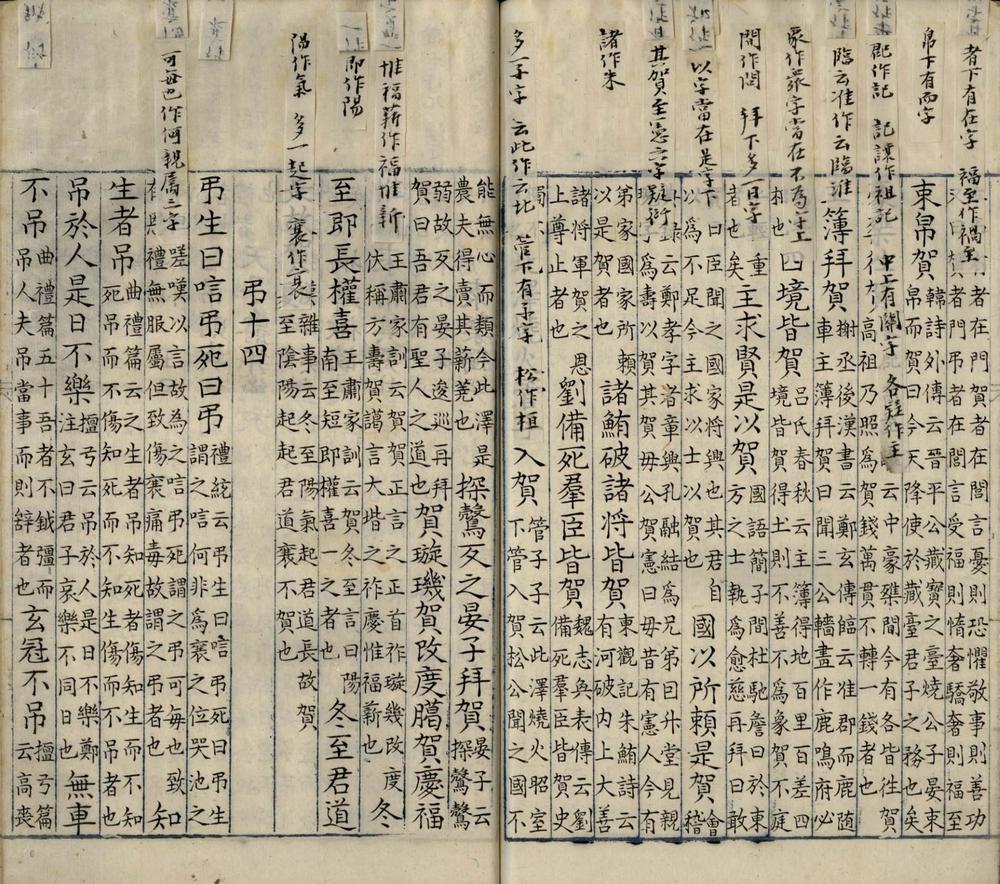 者下有在字 福至作禍至
帛下有兩字
郡作記 記讓作祖記 中上有闕字
臨云淮作云臨淮 各疑作主
象作衆字當在不為字上
閒作閏 拜下多一日字
以字當在是字下
其賀至憲之字疑衍
諸作朱
多一子字 云此作云北 管下有子字 松作桓
者在門賀者在閭言憂則恐懼敬事則善功
者門吊者在閭言受福則惰奢驕奢則福至
束帛賀 韓詩外傳云晉平公藏寶之臺燒公子晏束
帛而賀曰云今天降使於藏臺君子之務也矣
中豪桀間今有各皆徃賀
高祖乃照為賀錢萬貫不轉一錢者也
簿拜賀 謝丞後漢書云鄭玄傳饂云准郡而鹿随
車主簿拜賀曰聞三公轓畫作鹿鳴府必
相也 四境皆賀 呂氏春秋云主簿得地百里百差四
境皆賀得土則不善不為象賀不庭
者也矣 重主求賢是以賀 國語簡子間杜馳詹曰於東
方之士執為愈慈再拜曰敢
曰臣聞之國家将興也其君自
以為不足今主求以士以賀 國以所頼是賀 會稽
錄云鄭孝字者呂孔融結為兄弟曰升堂見親
為壽以賀其賀毋公賀憲曰毋昔有憲人今有
弟家國家所頼
以是賀者也 諸鮪破諸将皆賀 東觀記朱鮪詩云
有河破內上大善
諸將軍賀之恩
上尊上者也 劉備死羣臣皆賀 魏志奐表傳云劉
備死羣臣皆賀史
入賀 管子子云此澤燒火昭室
下管入賀松公聞之國不
惟福薪作福惟新
即作陽
陽作氣 多一起字 襄作衰
可每也作何親厲三字
能無心而類今此澤是
農夫得賣其薪荛也 探鷩叐之晏子拜賀 晏子云
探鷩鷩
弱故叐之晏子逡巡再拜
賀曰吾君有聖人之道也 賀璇璣賀改度臈賀慶福
王肅家訓云賀正言之正首祚璇幾改度
伏稱方壽賀謁言大堦之祚慶惟福薪也 冬
至即長權喜 王肅家訓云賀冬至言曰陽
南至短即權喜一之者也 冬至君道
雜事云冬至陽氣起君道長故賀
至陰陽起起君道襄不賀也
弔十四
弔生曰唁弔死曰弔 禮統云弔生曰唁弔死曰弔生
謂之唁何非為襄之位哭池之
嗟嘆以言故為之唁弔死謂之弔可每也 致
禮無服屬但致傷襄痛毒故謂之弔者也 知
生者吊 曲禮篇云之生者吊知死者傷知生而不知
死吊而不傷知死而不知生傷而不吊者也
吊於人是日不樂 擅弓云吊於人是日不樂鄭
注玄曰君子哀樂不同日也 無車
不吊 曲禮篇五十吾者不鉞彊而
吊人夫吊當事而則辭者也 玄冠不吊 擅弓篇
云高喪